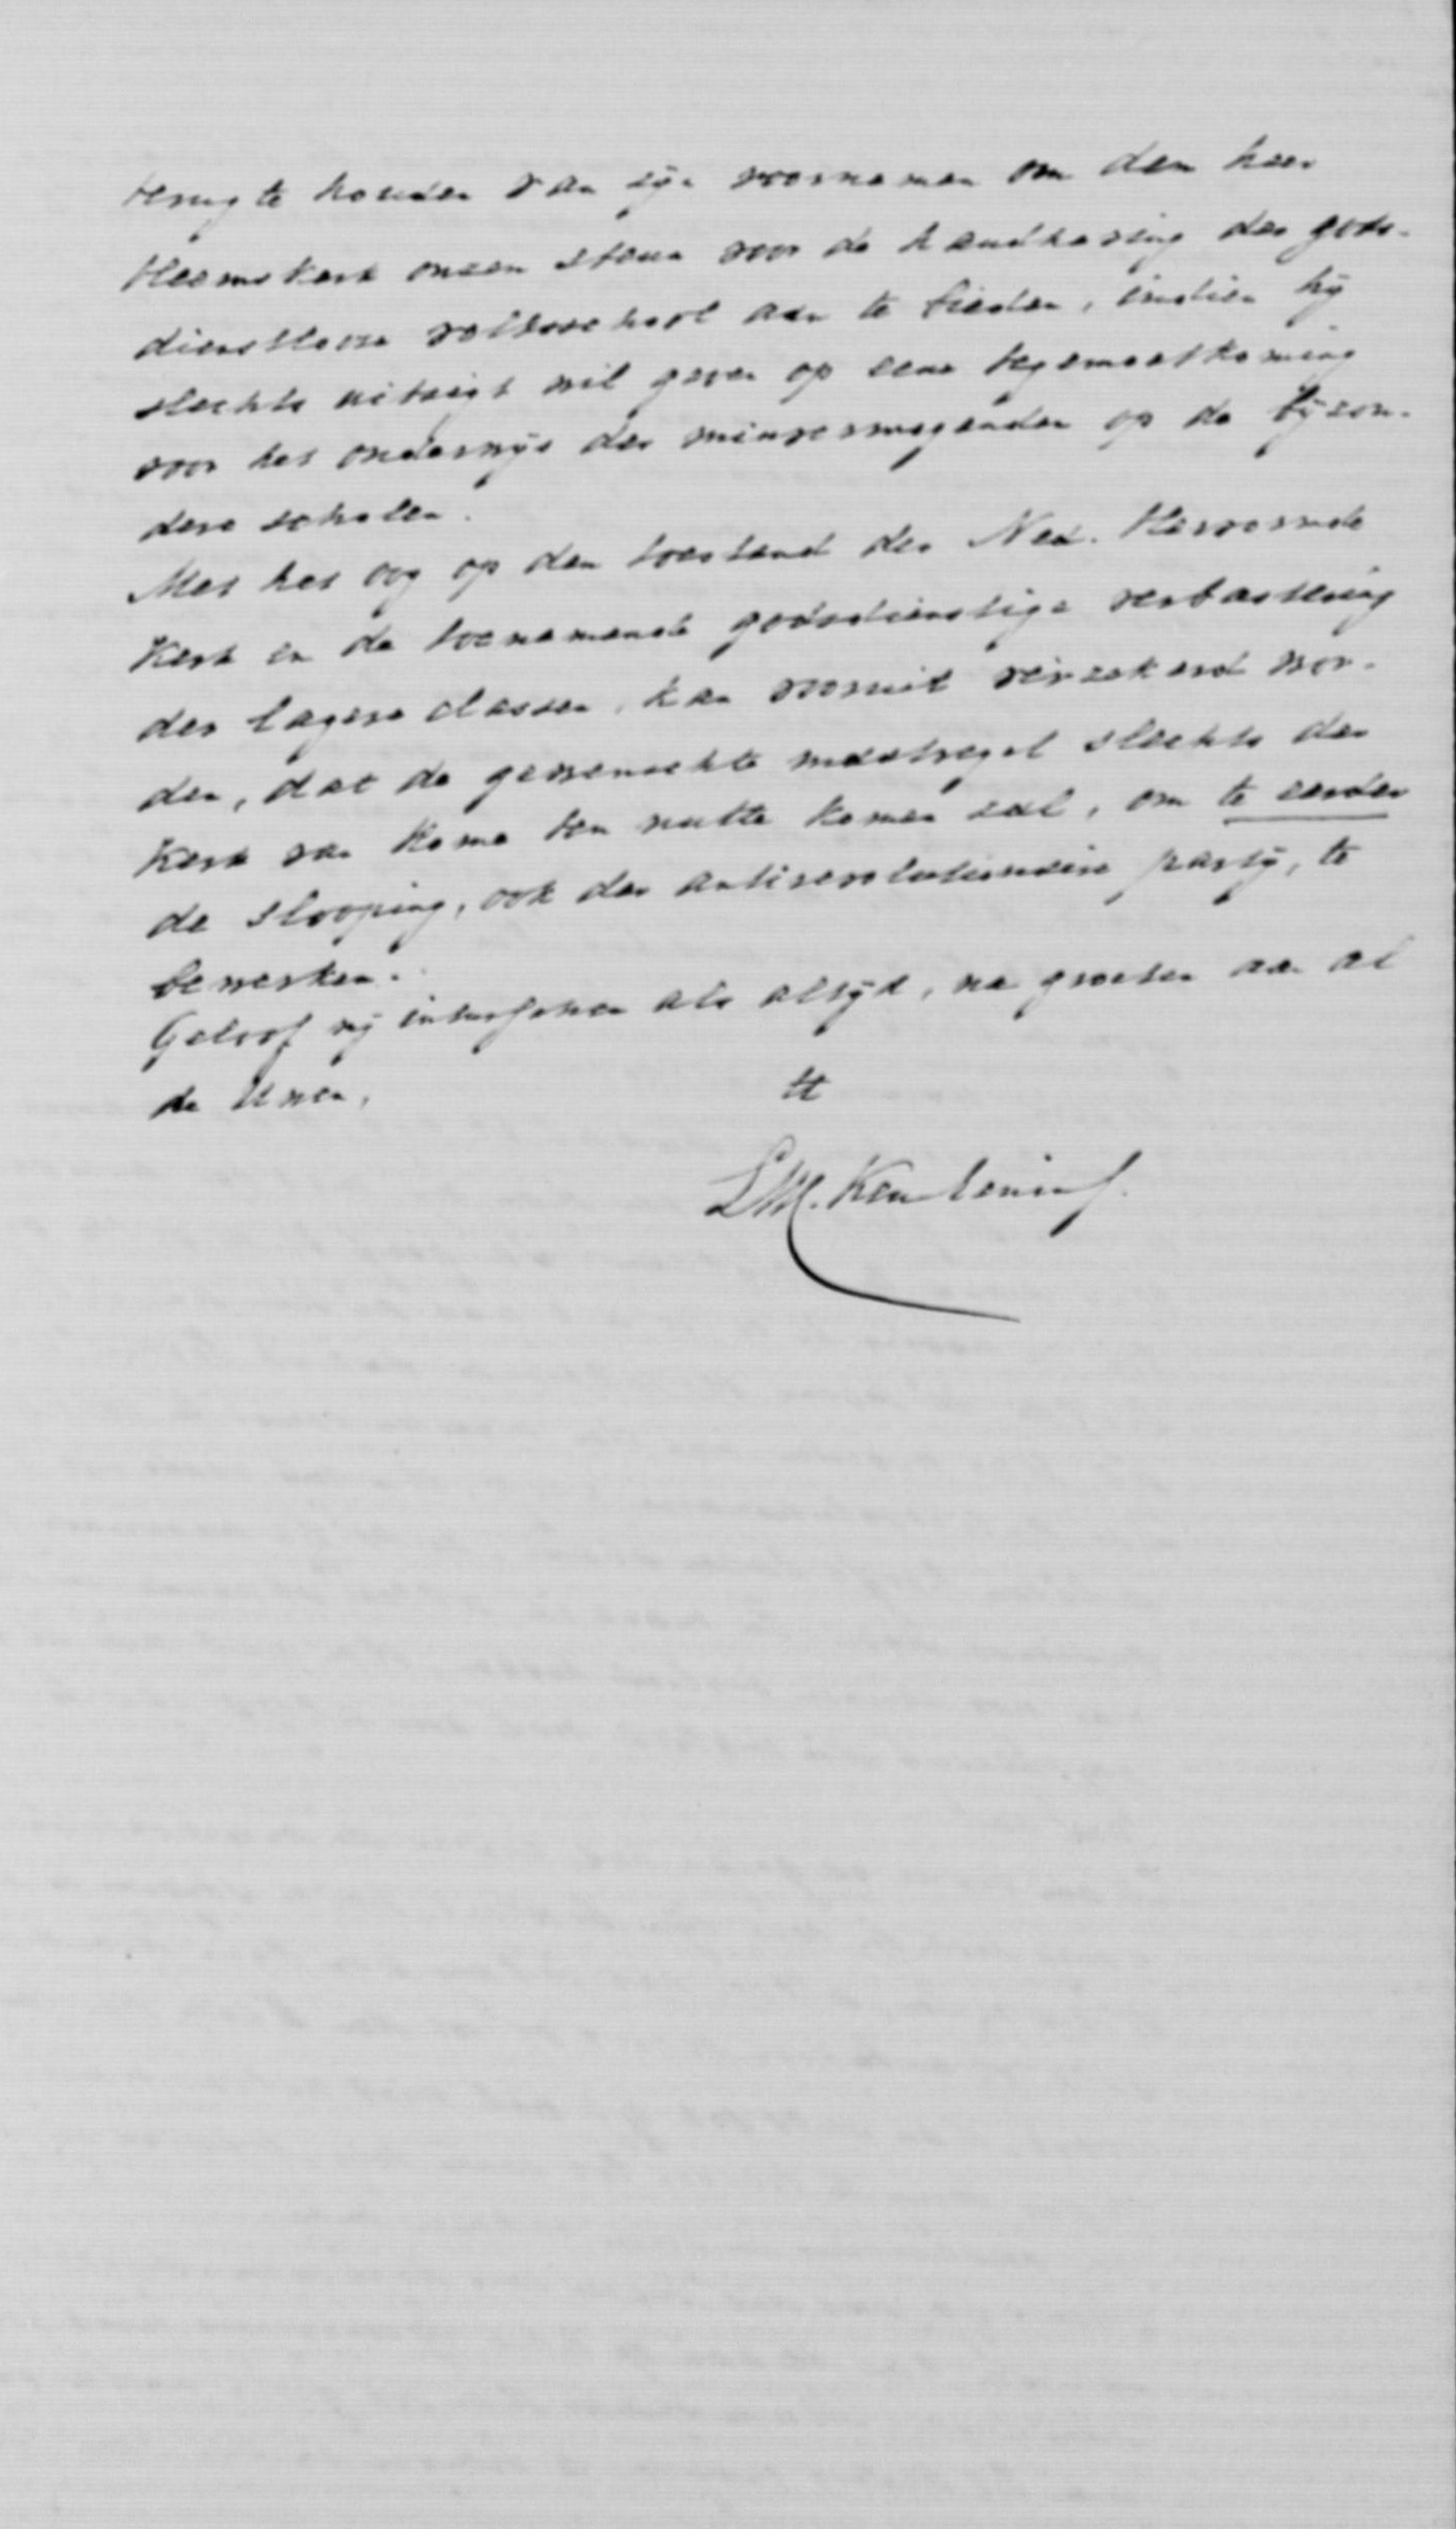 terug te houden van zijn voornemen om den heer
Heemskerk onzen steun voor de handhaving der gods-
dienstlooze volksschool aan te bieden, indien hij
slechts uitzigt wil geven op eene tegemoetkoming
voor het onderwijs der minvermogenden op de bijzon-
dere scholen.
Met het oog op den toestand der Ned. Hervormde
Kerk en de toenemende godsdienstige verbastering
der lagere classen, kan vooruit verzekerd wor-
den, dat de gewenschte maatregel slechts der
Kerk van Rome ten nutte komen zal, om te eerder
de slooping, ook der antirevolutionaire partij, te
bewerken.
Geloof mij intusschen als altijd, na groeten aan al
de Uwen,
tt
LM. Keuchenius.